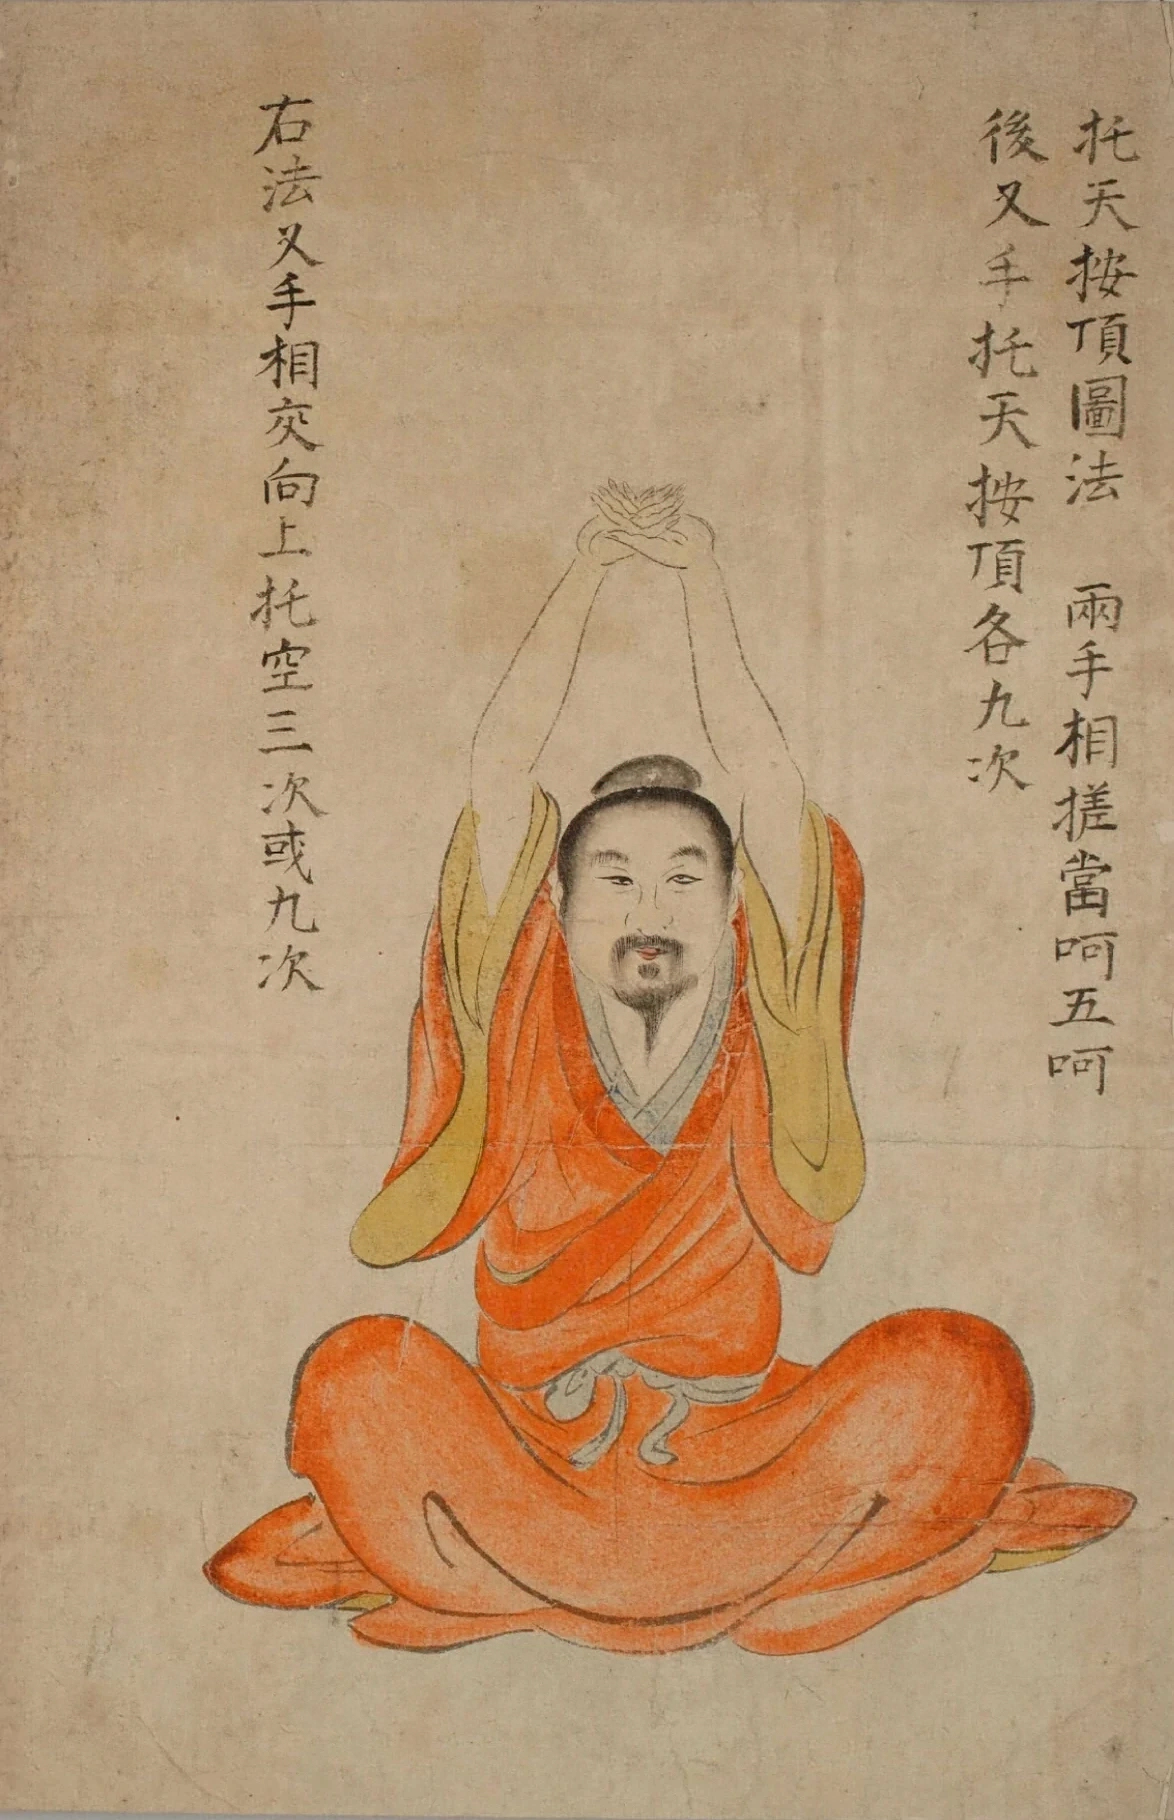 托天按頂圖法　兩手相搓當呵五呵
後叉手托天按頂各九次
右法叉手相交向上托空三次或九次